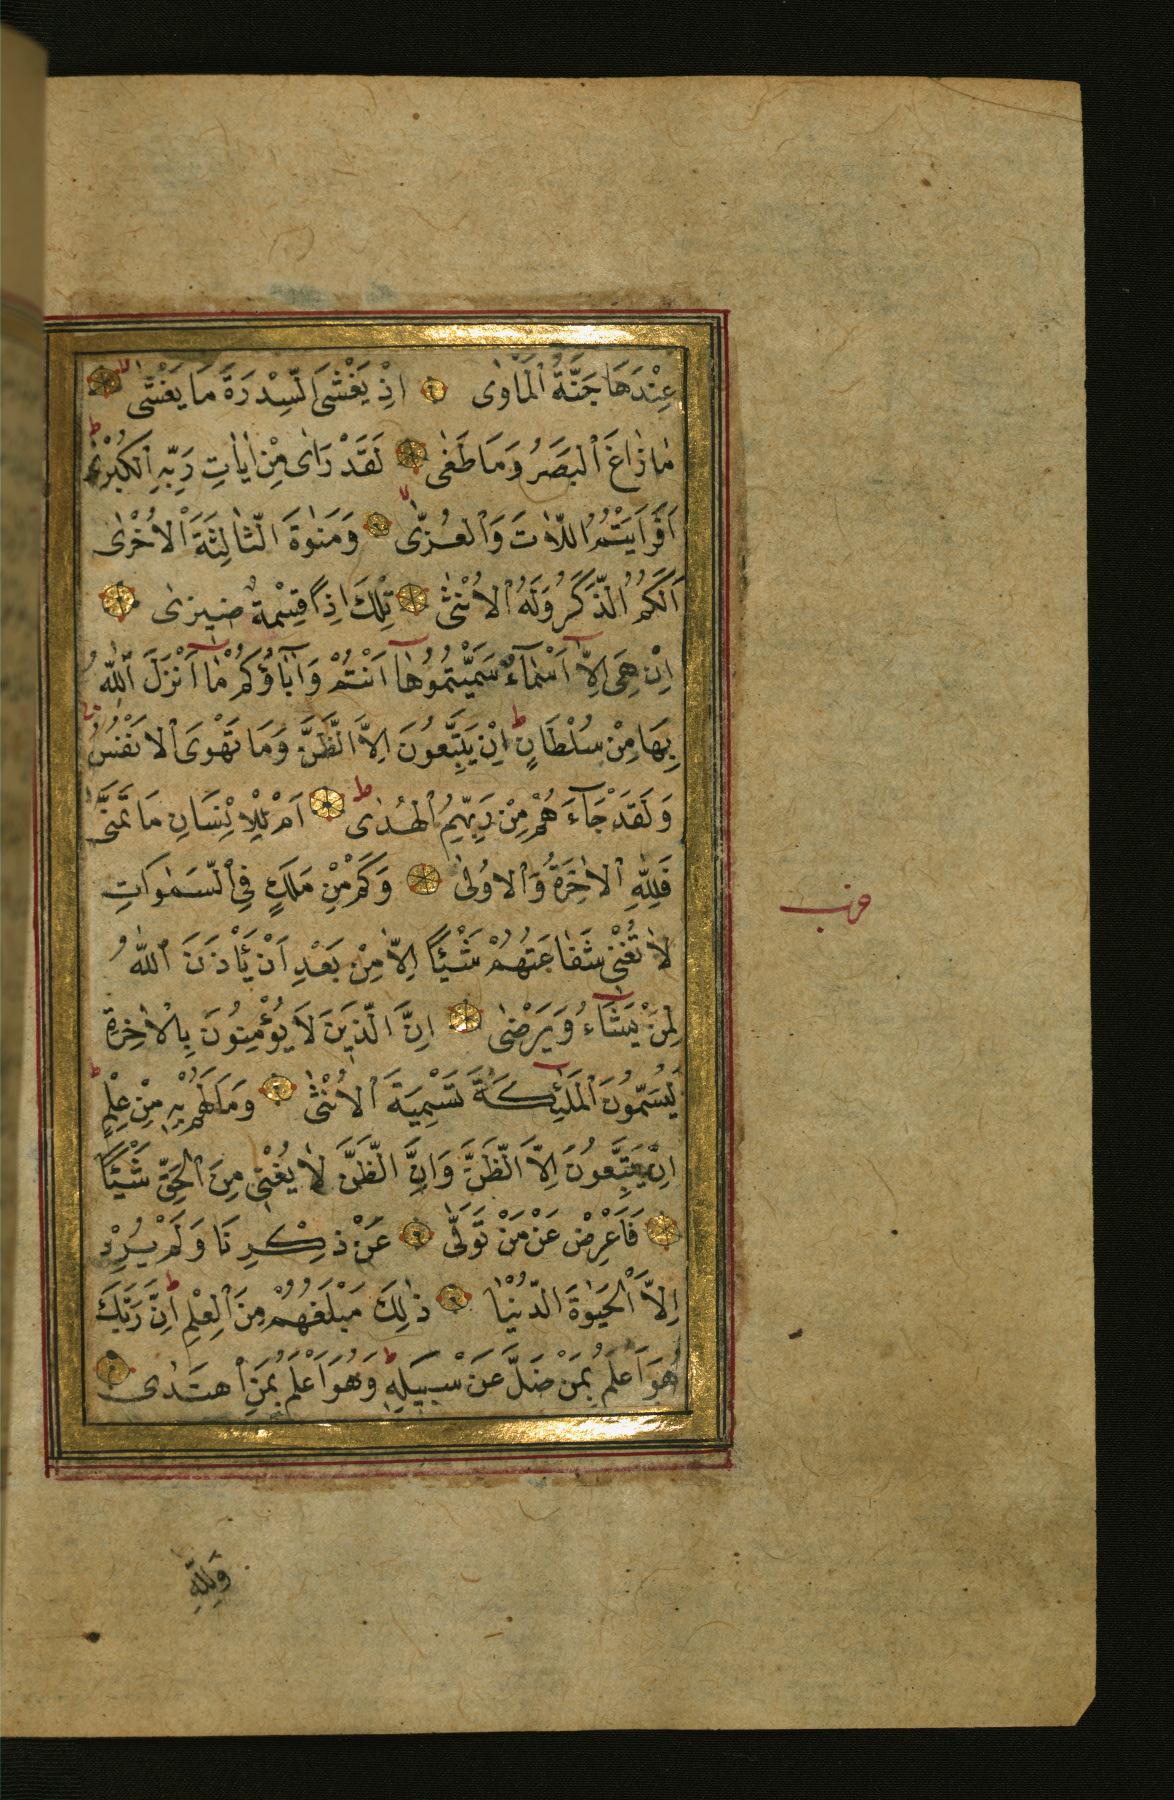 عِنْدَهَا جَنَّةُ الْمَاْوٰى اِذْ يَغْشَى السِّدْرَةَ مَا يَغْشٰى
مَا زَاغَ الْبَصَرُ وَمَا طَغٰى لَقَدْ رَاٰى مِنْ اٰيَاتِ رَبِّهِ الْكُبْرٰى
اَفَرَاَيْتُمُ اللَّاتَ وَالْعُزّٰى وَمَنٰوةَ الثَّالِثَةَ الْاُخْرٰى
اَلَكُمُ الذَّكَرُ وَلَهُ الْاُنْثٰى تِلْكَ اِذًا قِسْمَةٌ ضِيزٰى
اِنْ هِىَ اِلَّا اَسْمَآءٌ سَمَّيْتُمُوهَا اَنْتُمْ وَاٰبَاؤُكُمْ مَا اَنْزَلَ اللّٰهُ
بِهَا مِنْ سُلْطَانٍ اِنْ يَتَّبِعُونَ اِلَّا الظَّنَّ وَمَا تَهْوَى الْاَنْفُسُ
وَلَقَدْ جَآءَهُمْ مِنْ رَبِّهِمُ الْهُدٰى اَمْ لِلْاِنْسَانِ مَا تَمَنّٰى
فَلِلّٰهِ الْاٰخِرَةُ وَالْاُولٰى وَكَمْ مِنْ مَلَكٍ فِى السَّمٰوَاتِ
لَا تُغْنِى شَفَاعَتُهُمْ شَيْـًٔا اِلَّا مِنْ بَعْدِ اَنْ يَاْذَنَ اللّٰهُ
لِمَنْ يَشَاءُ وَيَرْضٰى اِنَّ الَّذِينَ لَا يُؤْمِنُونَ بِالْاٰخِرَةِ
لَيُسَمُّونَ الْمَلٰٓئِكَةَ تَسْمِيَةَ الْاُنْثٰى وَمَا لَهُمْ بِهِ مِنْ عِلْمٍ
اِنْ يَتَّبِعُونَ اِلَّا الظَّنَّ وَاِنَّ الظَّنَّ لَا يُغْنِى مِنَ الْحَقِّ شَيْـًٔا
فَاَعْرِضْ عَنْ مَنْ تَوَلّٰى عَنْ ذِكْرِنَا وَلَمْ يُرِدْ
اِلَّا الْحَيٰوةَ الدُّنْيَا ذٰلِكَ مَبْلَغُهُمْ مِنَ الْعِلْمِ اِنَّ رَبَّكَ
هُوَ اَعْلَمُ بِمَنْ ضَلَّ عَنْ سَبِيلِهِ وَهُوَ اَعْلَمُ بِمَنِ اهْتَدٰى
حزب
وَلِلّٰهِ